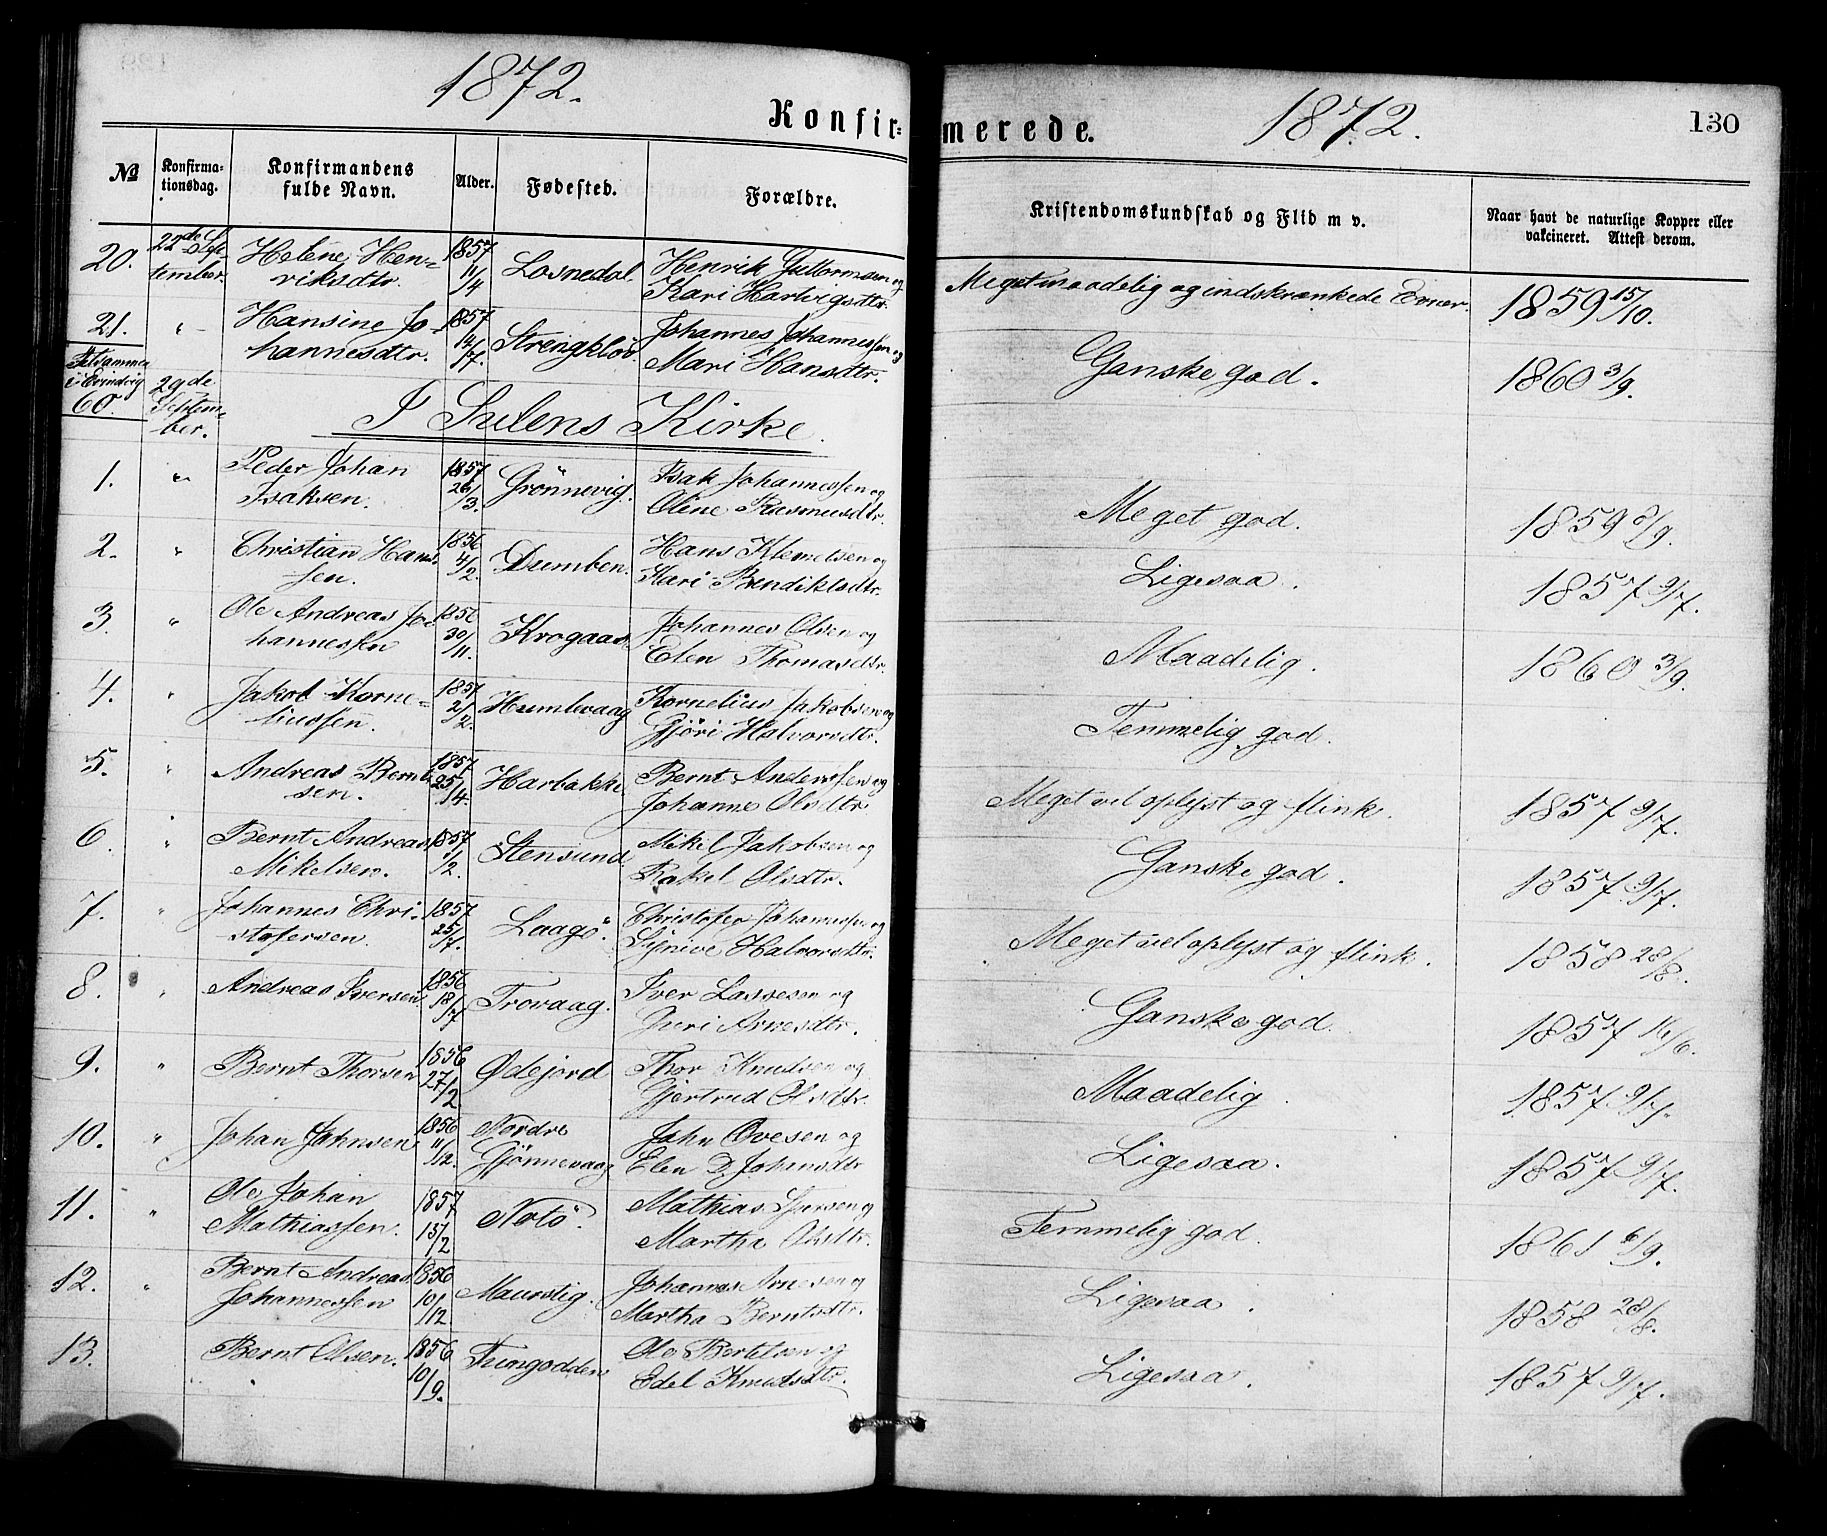 1872.
Konfir=
№
Konfirma-
tionsdag.
Konfirmandens
fulde Navn.
Alder.
Fødested.
Forældre.
20.
22de Sep-
tember.
Helene Hen-
riksdtr.
1857
11/4
Losnedal
Henrik Guttormsen og
Kari Hartvigsdtr.
21.
"
Hansine Jo-
hannesdtr.
1857
14/7.
Strengklov.
Johannes Johannessen og
Mari Hansdtr.
Tilsammen
i Evindvig
60.
29de
Septem-
ber.
I Sulens Kirke.
1.
"
Peder Johan
Isaksen.
1857
26/3.
Grönnevig.
Isak Johannessen og
Oline Rasmusdtr.
2.
"
Christian Hans-
sen.
1856
4/2.
Dumben.
Hans Klemetsen og
Kari Bendiktsdtr.
3.
"
Ole Andreas Jo-
hannessen
1856
30/11.
Krogaas
Johannes Olsen og
Elen Thomasdtr.
4.
"
Jakob Korne-
liussen.
1857
2/2.
Humlevaag
Kornelius Jakobsen og
Gjöri Halvorsdtr.
5.
"
Andreas Bernt-
sen.
1857
25/4.
Harbakke
Bernt Anderssen og
Johanne Olsdtr.
6.
"
Bernt Andreas
Mikelsen.
1857
1/2.
Stensund
Mikel Jakobsen og
Rakel Olsdtr.
7.
"
Johannes Chri-
stofersen.
1857
25/7.
Laagö.
Christofer Johannessen og
Synive Halvorsdtr.
8.
"
Andreas Iversen
1856
18/7
Trovaag.
Iver Lassesen og
Guri Arnesdtr.
9.
"
Bernt Thorsen
1856
27/2
Ødejord
Thor Knudsen og
Gjertrud Olsdtr.
10.
"
Johan Johnsen
1856
11/12.
Nordre
Gjönnevaag
John Ovesen og
Elen D. Johnsdtr
11.
"
Ole Johan
Mathiassen.
1857
15/2
Notö.
Mathias Iversen og
Martha Olsdtr.
12.
"
Bernt Andreas
Johannessen
1856
10/12.
Maurstig.
Johannes Arnesen og
Martha Berntsdtr.
13.
Bernt Olsen.
1856
10/9.
Tungodden
Ole Bertelsen og
Edel Knudsdtr.
merede.
1872.
130
Kristendomskundskab og Flid m v.
Naar havt de naturlige Kopper eller
vakcineret. Attest derom.
Meget maadelig og indskrænkede Evner.
1859 15/10.
Ganske god.
1860 3/9.
Meget god.
1859 8/9.
Ligesaa.
1857 9/7.
Maadelig.
1860 3/9.
Temmelig god.
Meget vel oplyst og flink.
1857 9/7.
Ganske god.
1857 9/7.
Meget vel oplyst og flink.
1858 28/8.
Ganske god.
1857 16/6.
Maadelig.
1857 9/7.
Ligesaa.
1857 9/7.
Temmelig god.
1861 6/9.
Ligesaa.
1858 28/8.
Ligesaa.
1857 9/7.